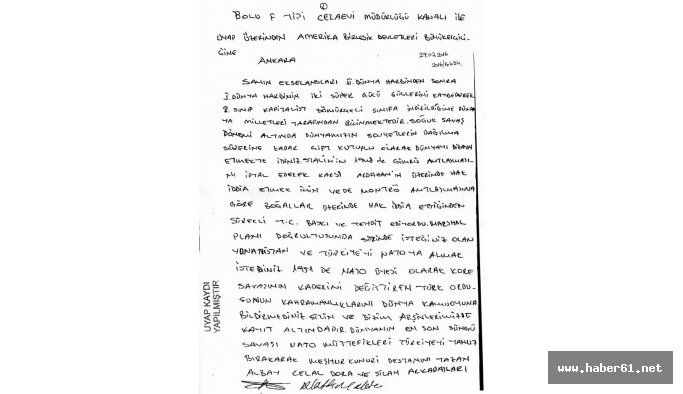 1
BOLU F TİPİ CEZAEVİ MÜDÜRLÜĞÜ KANALI İLE
UYAP ÜZERİNDEN AMERİKA BİRLEŞİK DEVLETLERİ BÜYÜKELÇİLİ-
ĞİNE
ANKARA
29.02.2016
SAYIN EKSELANSLARI II. DÜNYA HARBİNDEN SONRA
DÜNYA HARBİNİN İKİ SÜPER GÜCÜ GÜÇLERİNİ KAYBEDEREK
SINIF KAPİTALİST SÖMÜRGECİ SINIFA İNDİRİLDİĞİNE DÜNN
YA MİLLETLERİ TARAFINDAN BİLİNMEKTEDİR. SOĞUK SAVAŞ
DÖNEMİ ALTINDA DÜNYAMIZIN SOVYETLERİN DAĞILMA
SÜRECİNE KADAR ÇİFT KUTUPLU OLARAK DÜNYAMI DİZAYN
ETMEKTE İDİNİZ. STALİN'İN DE GÜMRÜ ANTLAŞMASI-
NI İPTAL EDEREK KARS ARDAHAN'IN ÜZERİNDE HAK
İDDİA ETMEK İÇİN VEDE MONTRÖ ANTLAŞMASINA
GÖRE BOĞAZLAR ÜZERİNDE HAK İDDİA ETTİĞİNDEN
SÜREKLİ T.C. BASKI VE TEHDİT EDİYORDU. MARSHAL
PLANI DOĞRULTUSUNDA SİZİNDE İSTEĞİNİZ OLAN
YUNANİSTAN VE TÜRKİYE'Yİ NATO'YA ALMAK
İSTEDİNİZ 1951 DE NATO ÜYESİ OLARAK KORE
SAVAŞININ KADERİNİ DEĞİŞTİREN TÜRK ORDU-
SUNUN KAHRAMANLIKLARINI DÜNYA KAMUOYUNA
BİLDİRMEDİNİZ SİZİN VE BİZİM ARŞİVLERİMİZDE
KAYIT ALTINDADIR. DÜNYANIN EN SON SÜNGÜ
SAVAŞI NATO MÜTTEFİKLERİ TÜRKİYEYİ YALNIZ
BIRAKARAK MEŞHUR KUNURİ DESTANINI YAZAN
ALBAY CELAL DORA VE SİLAH ARKADAŞLARI
UYAP KAYDI
YAPILMIŞTIR
www.haber61.net